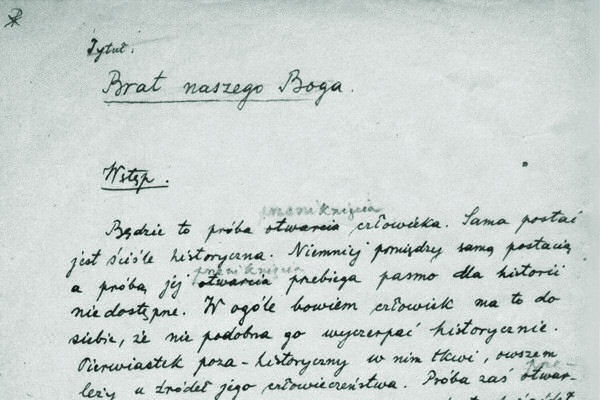 Tytuł:
Brat naszego Boga.
Wstęp.
przeniknięcia
Będzie to próba otwarcia człowieka. Sama postać
jest ściśle historyczna. Niemniej pomiędzy samą postacią,
przeniknięcia
a próbą jej otwarcia przebiega pasmo dla historii
niedostępne. W ogóle bowiem człowiek ma to do
siebie, że nie podobna go wyczerpać historycznie.
Pierwiastek poza-historyczny w nim tkwi, owszem
leży u źródeł jego człowieczeństwa. Próba zaś otwar-